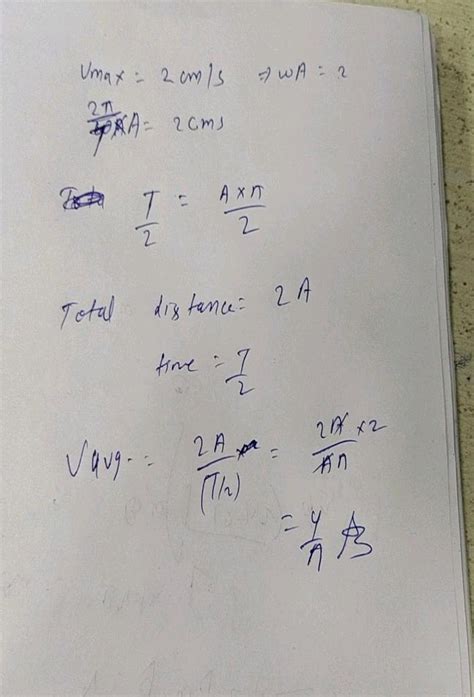 Vmax = 2 cm/s ⇒ wA = 2
2π/T A = 2cms
T/2 = A×π/2
Total distance = 2A
time = T/2
Vavg. = 2A/(T/2) = 2A×2/Aπ
= 4/π